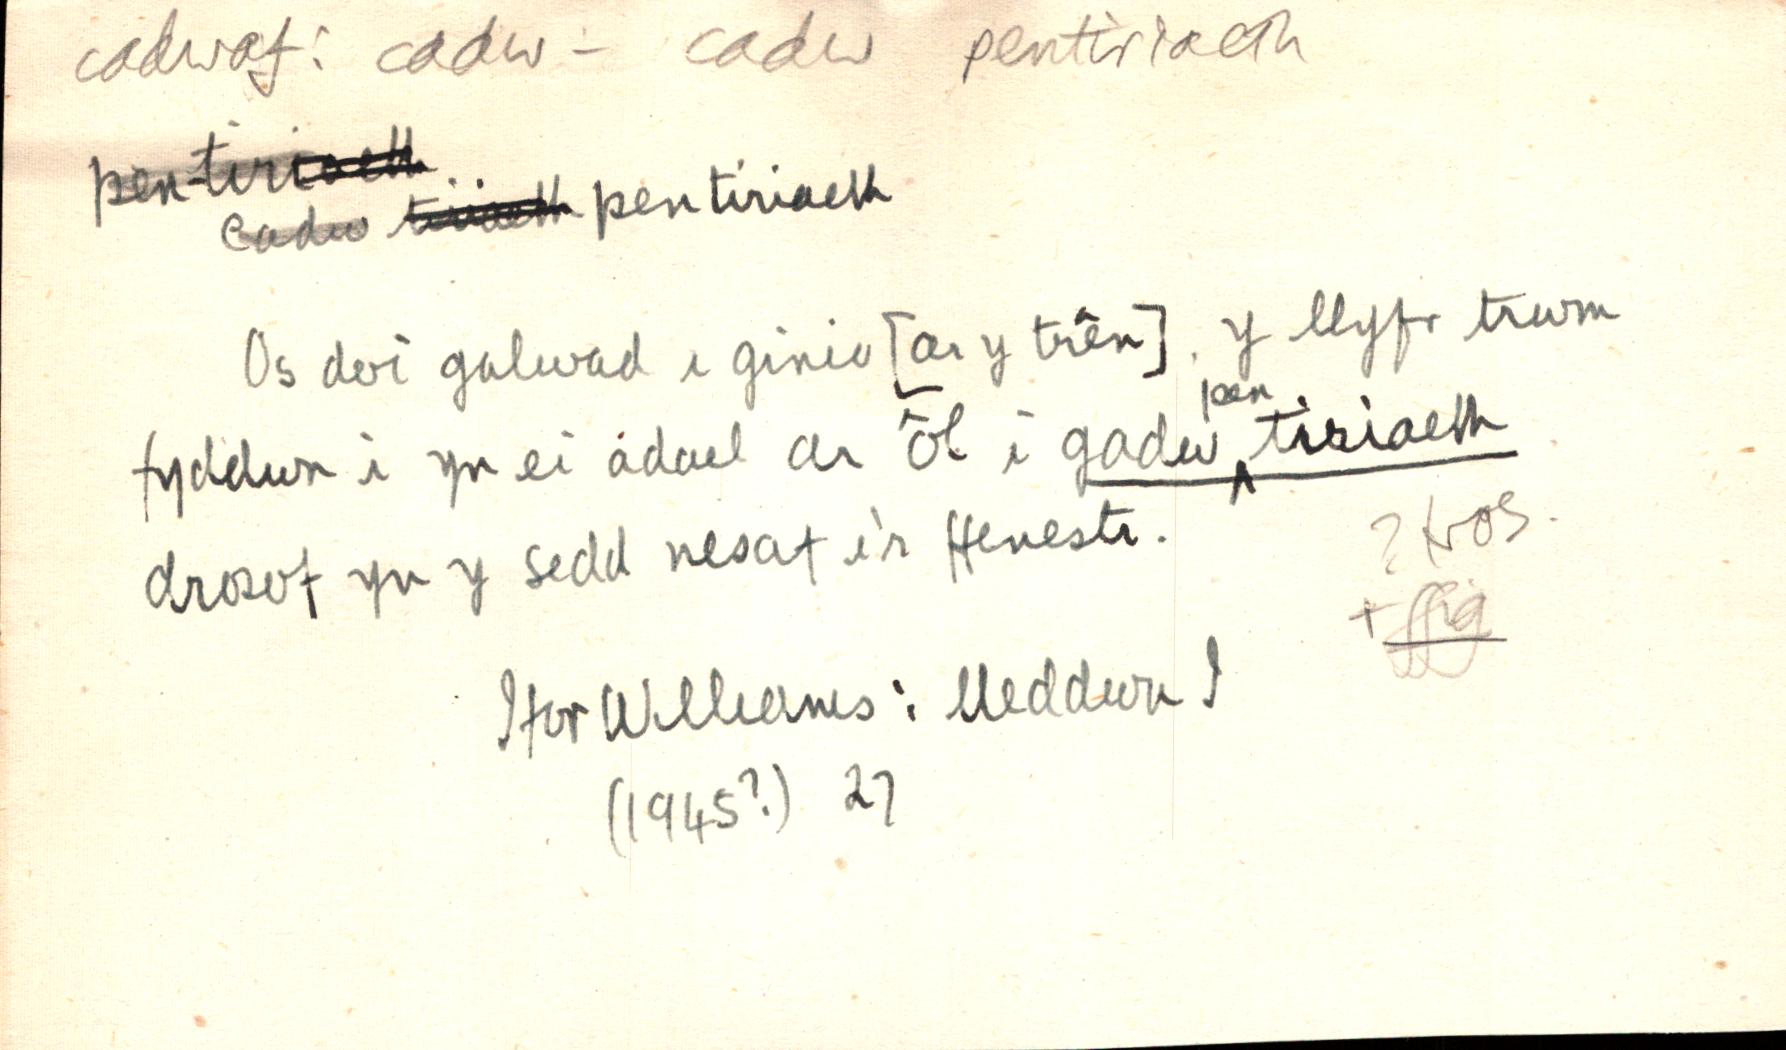 cadwaf: cadw – cadw pentiriaeth
pentiriaeth
cadw tiriaeth pentiriaeth
Os doi galwad i ginio [ar y trên], y llyfr trwm
pen
fyddwn i yn ei adael ar ôl i gadw ‸ tiriaeth
drosof yn y sedd nesaf i'r ffenestr.
? tros.
+ ffig
Ifor Williams : Meddwn I
(1945?) 27